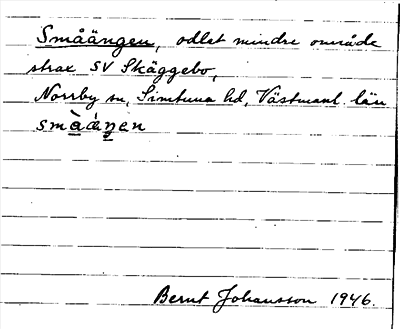 Småängen, odlat mindre område
strax SV Skäggebo,
Norrby sn, Simtuna hd, Västmanl. län
småäŋen
Bernt Johansson 1946.